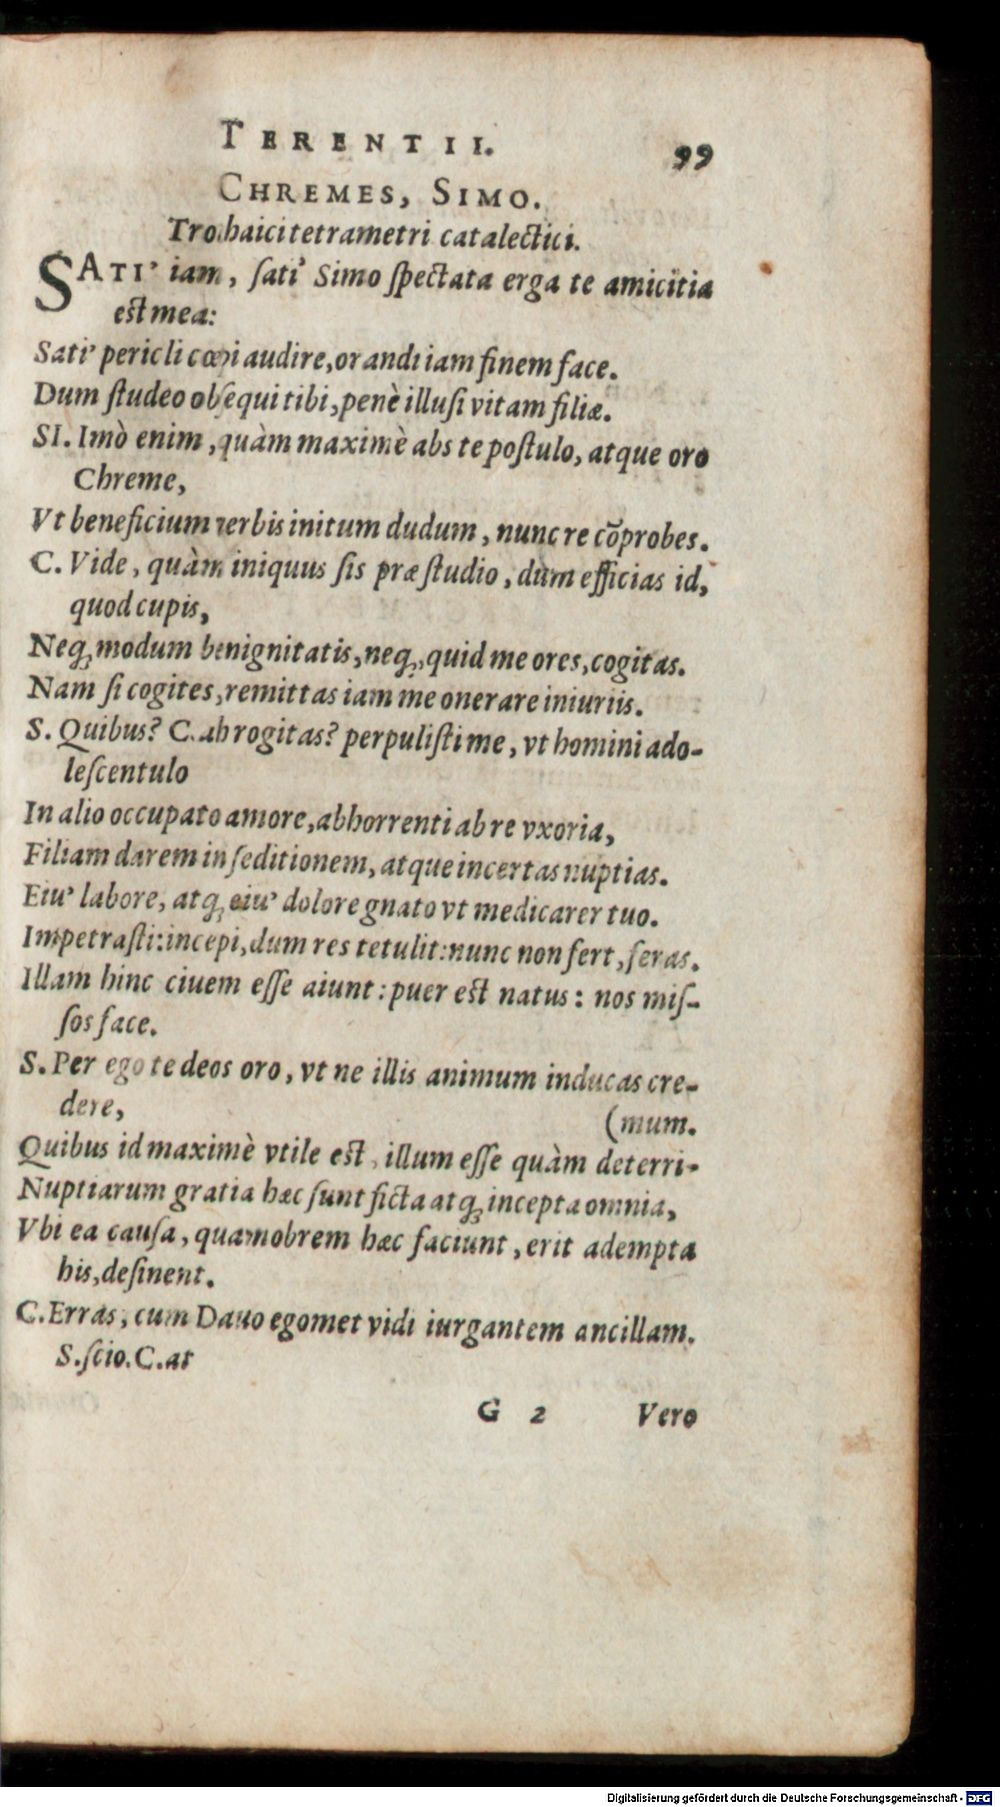 TERENTII. 99
CHREMES, SIMO.
Trochaici tetrametri catalectici.
SATI' iam, ſati' Simo ſpectata erga te amicitia
eſt mea:
Sati' pericli cœpi audire, orandi iam finem face.
Dum ſtudeo obſequi tibi, penè illuſi vitam filiæ.
SI. Imò enim, quàm maximè abs te poſtulo, atque oro
Chreme,
Vt beneficium verbis initum dudum, nunc re cõprobes.
C. Vide, quàm iniquus ſis præ ſtudio, dum efficias id,
quod cupis,
Neq; modum benignitatis, neq;, quid me ores, cogitas.
Nam ſi cogites, remittas iam me onerare iniuriis.
S. Quibus? C. ah rogitas? perpuliſti me, vt homini ado-
leſcentulo
In alio occupato amore, abhorrenti ab re vxoria,
Filiam darem in ſeditionem, atque incertas nuptias.
Eiu' labore, atq; eiu' dolore gnato vt medicarer tuo.
Impetraſti: incepi, dum res tetulit: nunc non fert, feras.
Illam hinc ciuem eſſe aiunt: puer eſt natus: nos miſ-
ſos face.
S. Per ego te deos oro, vt ne illis animum inducas cre-
dere, (mum.
Quibus id maximè vtile eſt, illum eſſe quàm deterri-
Nuptiarum gratia hæc ſunt ficta atq; incepta omnia,
Vbi ea cauſa, quamobrem hæc faciunt, erit adempta
his, deſinent.
C. Erras, cum Dauo egomet vidi iurgantem ancillam.
S. ſcio. C. at
G 2 Vero
Digitalisierung gefördert durch die Deutsche Forschungsgemeinschaft - DFG